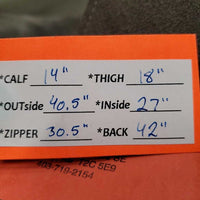 *CALF 14" *THIGH 18"
*OUTside 40.5" *Inside 27"
*ZIPPER 30.5" *BACK 42"
12C 5E9
403-719-2154